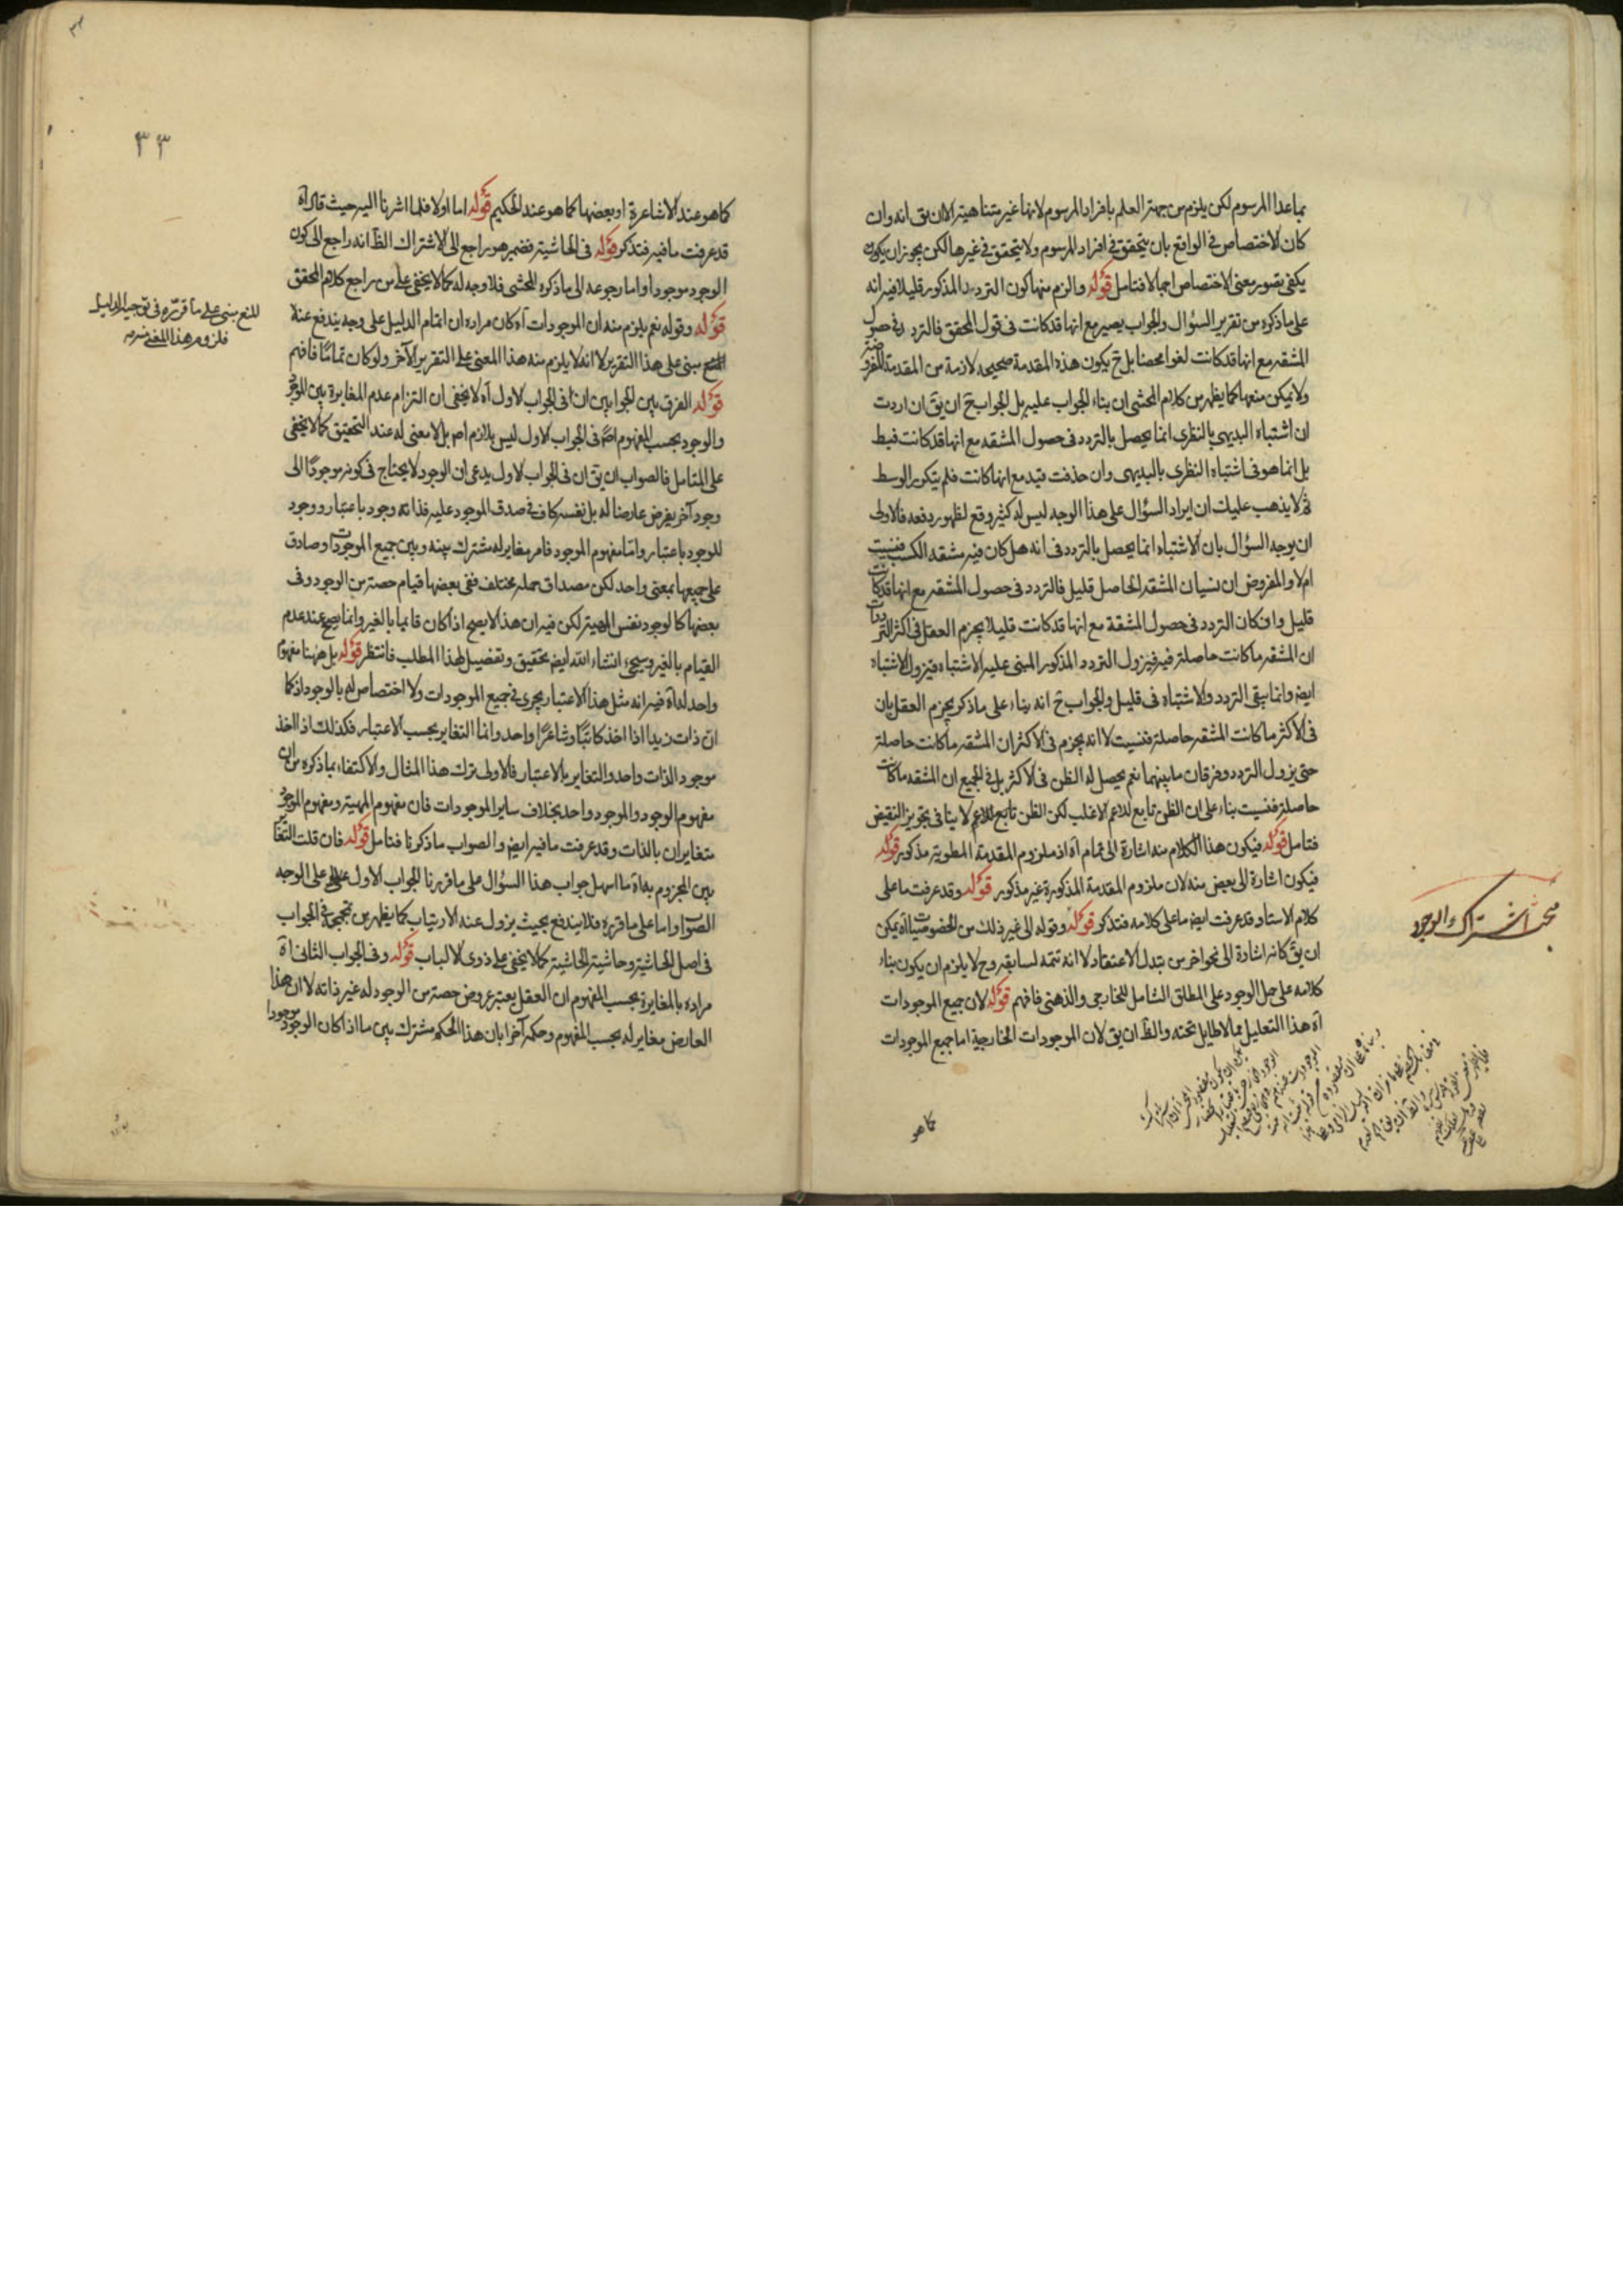 بماعدا المرسوم لكن يلزم من جهة العلم بافراد المرسوم لانها غير متناهية الا ان يق انه وان
كان الاختصاص فى الواقع بان يتحقق فى افراد المرسوم ولا يتحقق فى غيرها لكن يجوز ان يكون
يكفى تصور معنى الاختصاص اجمالا فتامل قوله والزم منها كون التردد المذكور قليلا فيه انه
على ما ذكره من تقرير السؤال والجواب يصير مع انها قد كانت فى قول المحقق فالتردد فى حصول
المشقه مع انها قد كانت لغوا محضا بل ح يكون هذه المقدمة صحيحه لازمة من المقدمة المفروضة
ولا يمكن منعها كما يظهر من كلام المحشى ان بناء الجواب عليه بل الجواب ح ان يق ان اردت
ان اشتباه البديهى بالنظرى انما يحصل بالتردد فى حصول المشقه مع انها قد كانت فبط
بل انما هو فى اشتباه النظرى بالبديهى وان حذفت قيد مع انها كانت فلم يتكرر الوسط
ثم لا يذهب عليك ان ايراد السؤال على هذا الوجه ليس له كثير وقع لظهور دفعه فالاولى
ان يوجه السؤال بان الاشتباه انما يحصل بالتردد فى انه هل كان فيه مشقه الكسب فنسيت
ام لا والمفروض ان نسيان المشقه الحاصل قليل فالتردد فى حصول المشقه مع انها قد كانت
قليل وان كان التردد فى حصول المشقة مع انها قد كانت قليلا يجزم العقل فى اكثر الترددات
ان المشقه ما كانت حاصلة فيه فيزول التردد المذكور المبنى عليه الاشتباه فيزول الاشتباه
ايض وانما يبقى التردد والاشتباه فى قليل والجواب ح انه بناء على ما ذكر يجزم العقل بان
فى الاكثر ما كانت المشقه حاصلة فنسيت لا انه يجزم فى الاكثر ان المشقه ما كانت حاصلة
حتى يزول التردد وفرقان ما بينهما نعم يحصل له الظن فى الاكثر بل فى الجميع ان المشقه ما كانت
حاصلة فنسيت بناء على ان الظن تابع للاعم الاغلب لكن الظن تابع للاعم لا ينافى تجويز النقيض
فتامل قوله فيكون هذا الكلام منه اشارة الى تمام آه اذ ملزوم المقدمة المطوية مذكور قوله
فيكون اشارة الى بعض منه لان ملزوم المقدمة المذكورة غير مذكور قوله وقد عرفت ما على
كلام الاستاد قد عرفت ايض ما على كلامه فتذكر قوله وقوله الى غير ذلك من الخصوصيات آه يمكن
ان يق كانه اشارة الى نحو اخر من تبدل الاعتقاد لا انه تتمه لسابقه وح لا يلزم ان يكون بناء
كلامه على حمل الوجود على المطلق الشامل للخارجى والذهنى فافهم قوله لان جميع الموجودات
آه هذا التعليل مما لا طايل تحته والظ ان يق لان الموجودات الخارجية اما جميع الموجودات
كما هو
مبحث اشتراك الوجود
٣٣
كما هو عند الاشاعرة او بعضها كما هو عند الحكيم قوله اما اولا فلما اشرنا اليه حيث قال آه
قد عرفت ما فيه فتذكر قوله فى الحاشية فضمير هو راجع الى الاشتراك الظ انه راجع الى كون
الوجود موجودا واما رجوعه الى ما ذكره المحشى فلا وجه له كما لا يخفى على من راجع كلام المحقق
قوله وقوله نعم يلزم منه ان الموجودات آه كان مراده ان اتمام الدليل على وجه يندفع عنه
المنع مبنى على هذا التقرير لا انه لا يلزم منه هذا المعنى على التقرير الآخر ولو كان تماما فافهم
قوله الفرق بين الجوابين ان فى الجواب الاول آه لا يخفى ان التزام عدم المغايرة بين الموجود
والوجود بحسب المفهوم اصلا فى الجواب الاول ليس بلازم اصلا بل لا معنى له عند التحقيق كما لا يخفى
على المتامل فالصواب ان يق ان فى الجواب الاول يدعى ان الوجود لا يحتاج فى كونه موجودا الى
وجود آخر يفرض عارضا له بل نفسه كاف فى صدق الموجود عليه فذاته وجود باعتبار ووجود
للوجود باعتبار واما مفهوم الموجود فامر مغاير له مشترك بينه وبين جميع الموجودات وصادق
على جميعها بمعنى واحد لكن مصداق حمله مختلف ففى بعضها قيام حصة من الوجود وفى
بعضها كالوجود نفس المهية لكن فيه ان هذا لا يصح اذا كان قايما بالغير وانما يصح عند عدم
القيام بالغير وسيجىء انشاء الله ايض تحقيق وتفصيل لهذا المطلب فانتظر قوله بل ههنا مفهوم
واحد له آه فيه انه مثل هذا الاعتبار يجرى فى جميع الموجودات ولا اختصاص له بالوجود اذ كما
ان ذات زيد اذا اخذ كاتبا وشاعرا واحد وانما التغاير بحسب الاعتبار فكذلك اذا اخذ
موجود الذات واحد والتغاير بالاعتبار فالاولى ترك هذا المثال والاكتفاء بما ذكره من ان
مفهوم الوجود والموجود واحد بخلاف ساير الموجودات فان مفهوم المهية ومفهوم الموجود
متغايران بالذات وقد عرفت ما فيه ايض والصواب ما ذكرنا فتامل قوله فان قلت التغاير
بين المجزوم به آه ما اسهل جواب هذا السؤال على ما قررنا الجواب الاول على الوجه
الصواب واما على ما قرره فلا يندفع بحيث يزول عنه الارتياب كما يظهر من تمجمجه فى الجواب
فى اصل الحاشية وحاشية الحاشية كما لا يخفى على ذوى الالباب قوله وفى الجواب الثانى آه
مراده بالمغايرة بحسب المفهوم ان العقل يعتبر عروض حصة من الوجود له غير ذاته لا ان هذا
العارض مغاير له بحسب المفهوم وحكمه آخرا بان هذا الحكم مشترك بين ما اذا كان الوجود موجودا
المنع مبنى على ما قرره فى توجيه الدليل
فلزوم هذا المعنى منه